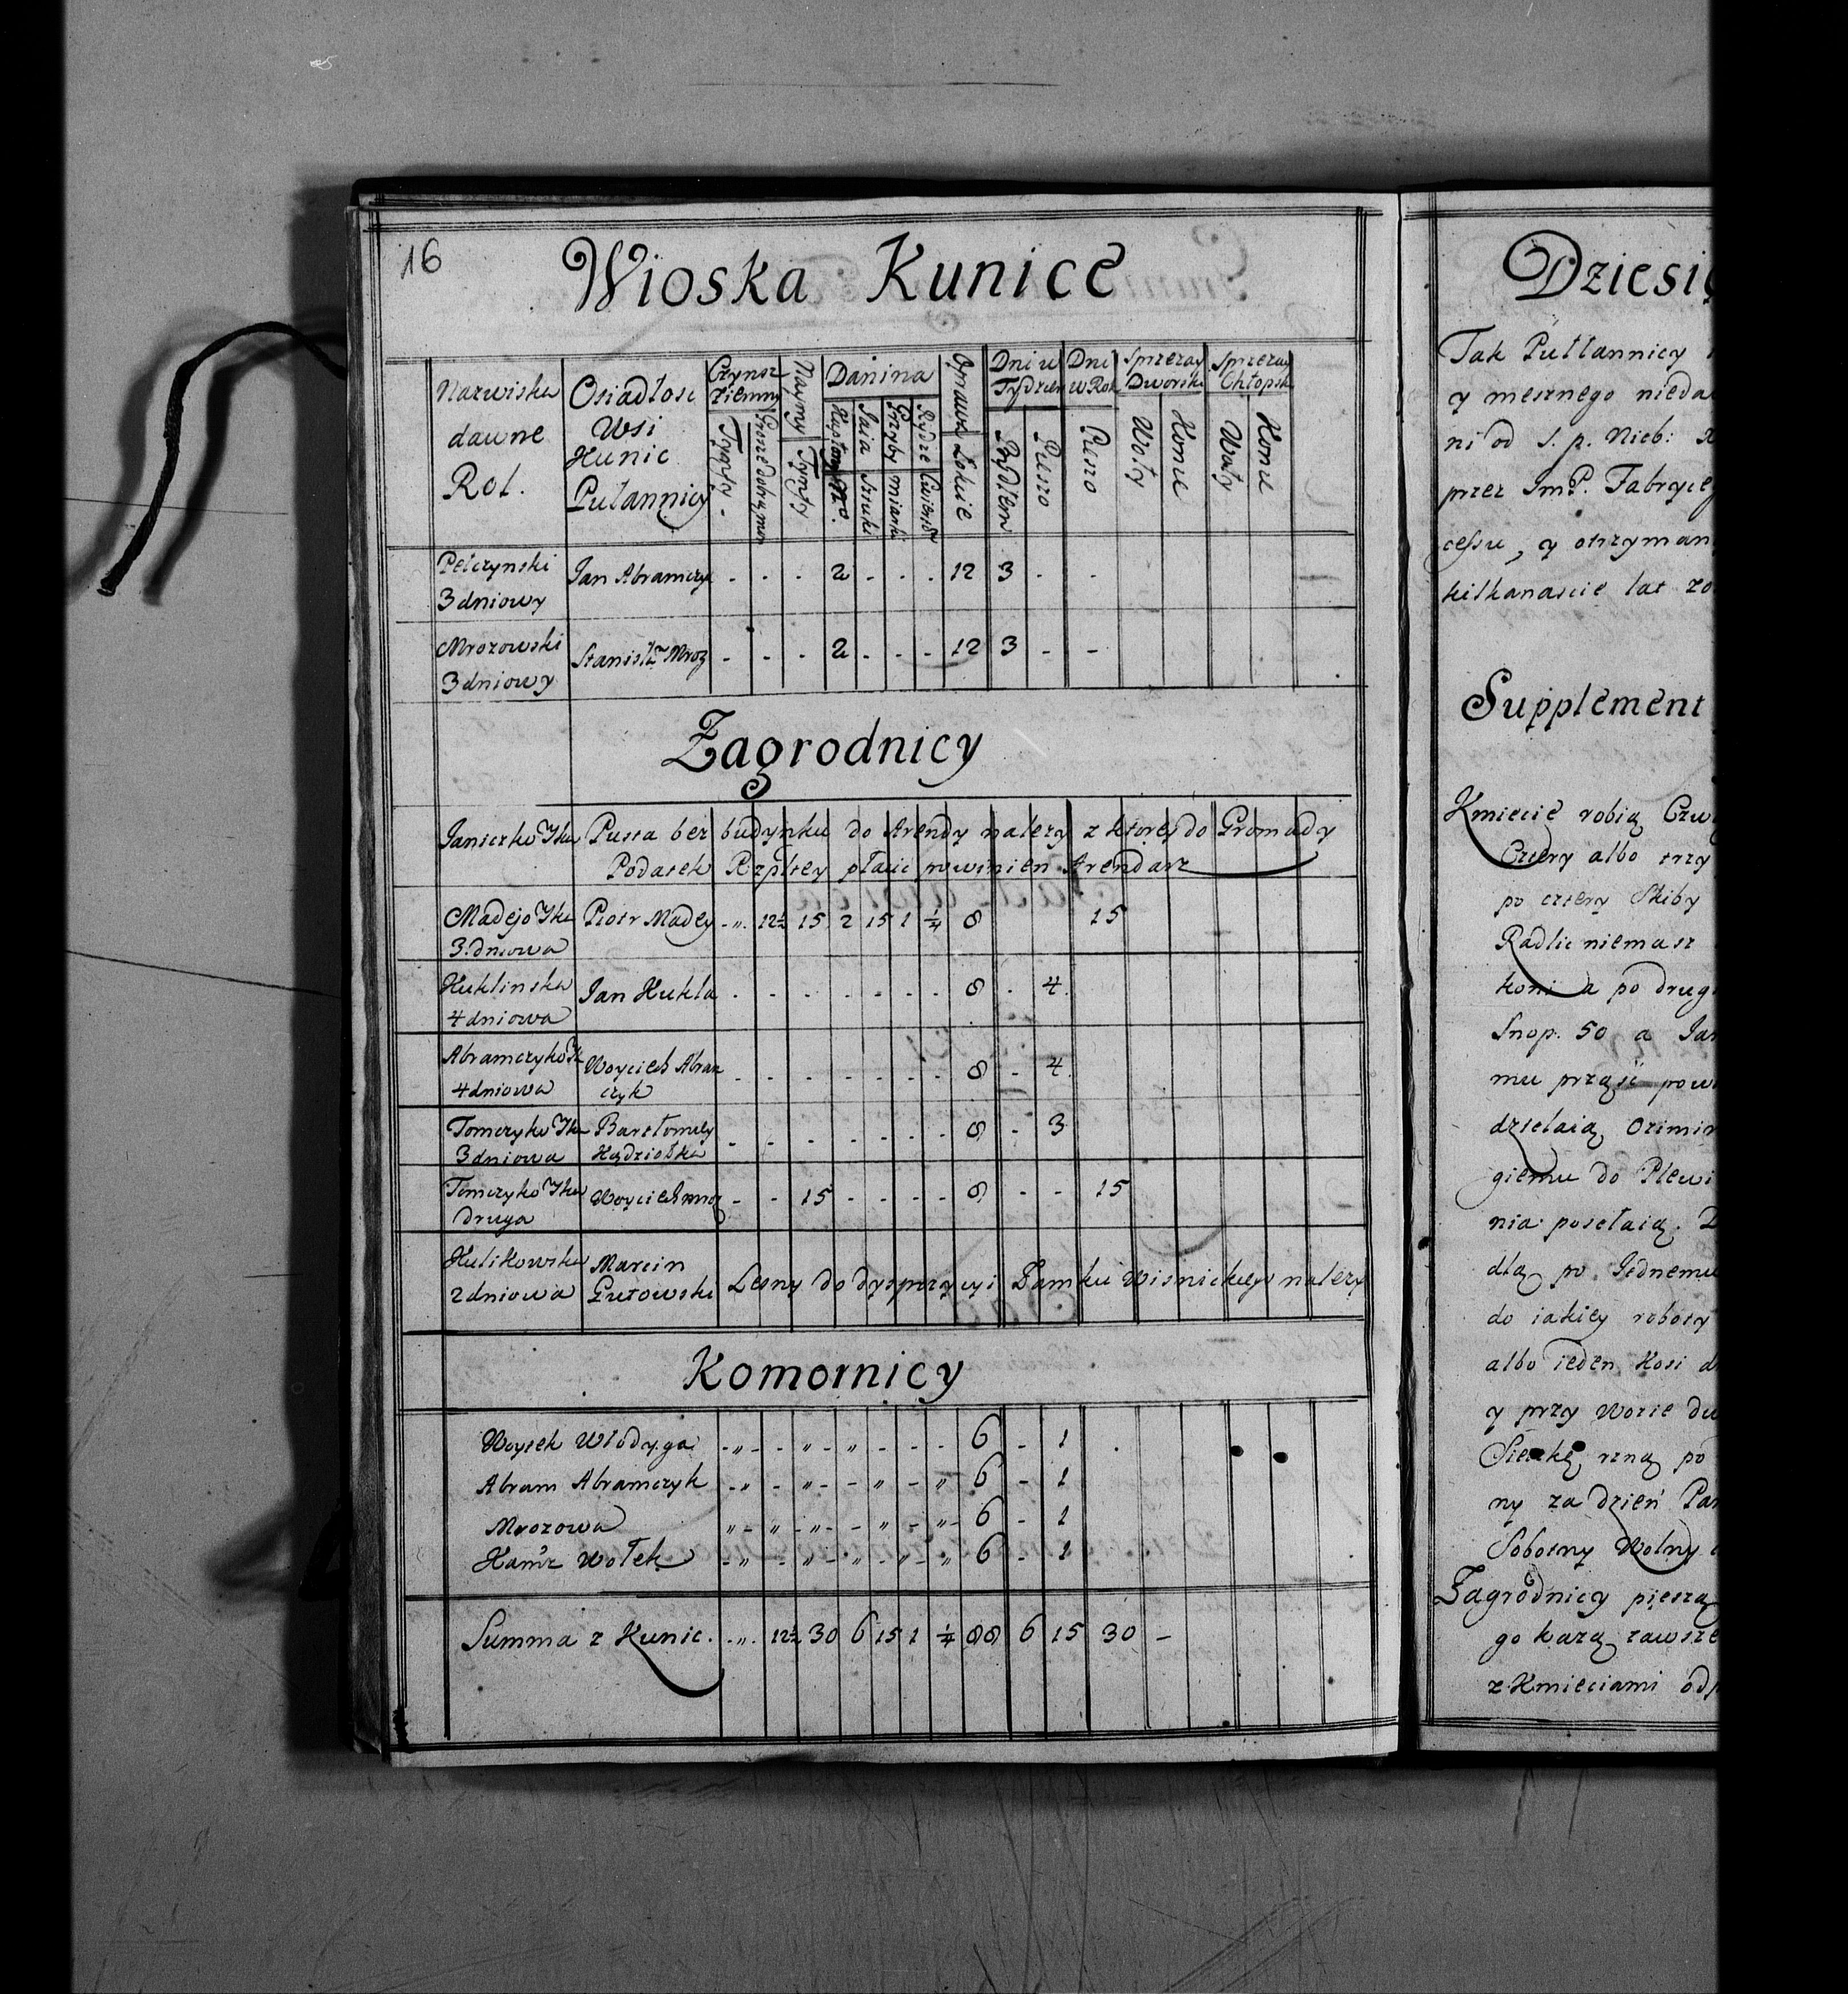 16
Wioska Kunice
Nazwiska dawne Rol.
Osiadłosc Wsi Kunic Pułannicy
Czynsz ziemny
Tynfy
Grosze dobry mon
Naymy
Tynfy
Danina
Kapłony No.
Jaia Sztuki
Grzyby mianki
Rydze
Oprawa Łokcie
Dni w Tydzien
Bydłem
Pieszo
Dni w Rok
Pieszo
Sprzezay Dworski
Woły
Konie
Sprzezay Chłopski
Woły
Konie
Pełczynski 3 dniowy Jan Abramczyk - - - 2 - - - 12 3 - -
Mrozowski 3 dniowy Stanisł: Mroz - - - 2 - - - 12 3 - -
Zagrodnicy
Janiczko Ska Pusta bez budynku do Arendy nalezy z ktorey do Gromady
Podatek Rzpltey płacic powinien Arendarz
Madejo Ska 3 dniowa Piotr Madey - „ 12½ 15 2 15 1 ¼ 8 15
Kuklinska 4 dniowa Jan Kukla - - - - - - - 8 - 4
Abramczyko Ska 4 dniowa Woyciech Abramczyk - - - - - - - 8 - 4
Tomczyko Ska 3 dniowa Bartłomiey Kądziołka - - - - - - - 8 - 3
Tomczyko Ska druga Woyciech Mroz - - 15 - - - - 8 - - 15
Kulikowska 2 dniowa Marcin Gutowski Lesny do dyspozycyi Zamku Wisnickiego nalezy
Komornicy
Woytek Włodyga - „ - - „ - „ - - - 6 - 1
Abram Abramczyk - „ - „ - - „ - „ 6 - 1
Mrozowa „ - „ - „ - - „ - „ - 6 - 1
Kazm:rz Wołek - „ - „ - „ - „ - „ 6 - 1
Summa z Kunic. - „ - 12½ 30 6 15 1 ¼ 88 6 15 30 -
Dziesię
Tak Pułłannicy
y mesznego nieda
ni od S. p. Nieb:
przez ImP. Fabryce
cessu, y otrzyman
kilkanascie lat zo
Supplement
Kmiecie robią Czw
Cztery albo trzy
po cztery Skiby
Radlic niemasz
koni a po drug
Snop. 50 a Jar
mu prząsc pow
dzielaią Ozimin
giemu do Plewi
nia posełaią.
dlą po Jednemu
do iakiey roboty
albo ieden Kosi d
y przy Wozie du
Sieczkę rzną po
ny za dzień Pan
Sobotny Wolny
Zagrodnicy pieszą
go każą zawsze
z Kmieciami odp